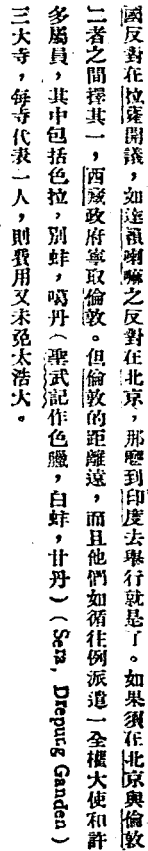 國反對在拉薩開議，如達賴喇嘛之反對在北京，那麼到印度去舉行就是了。如果須在北京與倫敦
二者之間擇其一，西藏政府寧取倫敦。但倫敦的距離遠，而且他們如循往例派遣一全權大使和許
多屬員，其中包括色拉，別蚌，噶丹（聖武記作色臘，白蚌，甘丹）（Sera, Drepung Ganden）
三大寺，每寺代表一人，則費用又未免太浩大。